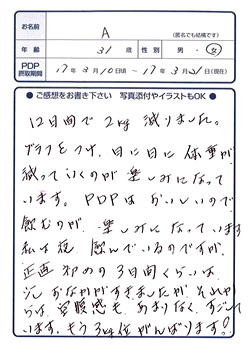 お名前 A (匿名でも結構です)
年齢 31歳 性別 男・女
PDP摂取期間 17年3月10日頃 ~ 17年3月21日(現在)
● ご感想をお書き下さい 写真添付やイラストもOK ●
12日間で2kg減りました。
グラフをつけ、日に日に体重が
減っていくのが楽しみになって
います。PDPはおいしいので
飲むのが、楽しみになっています
私は夜、飲んでいるのですが、
正直初めの3日間くらいは、
少しおなかがすきましたが、それから
らは、空腹感もあまりなく、すごして
います。もう3kg位がんばります!